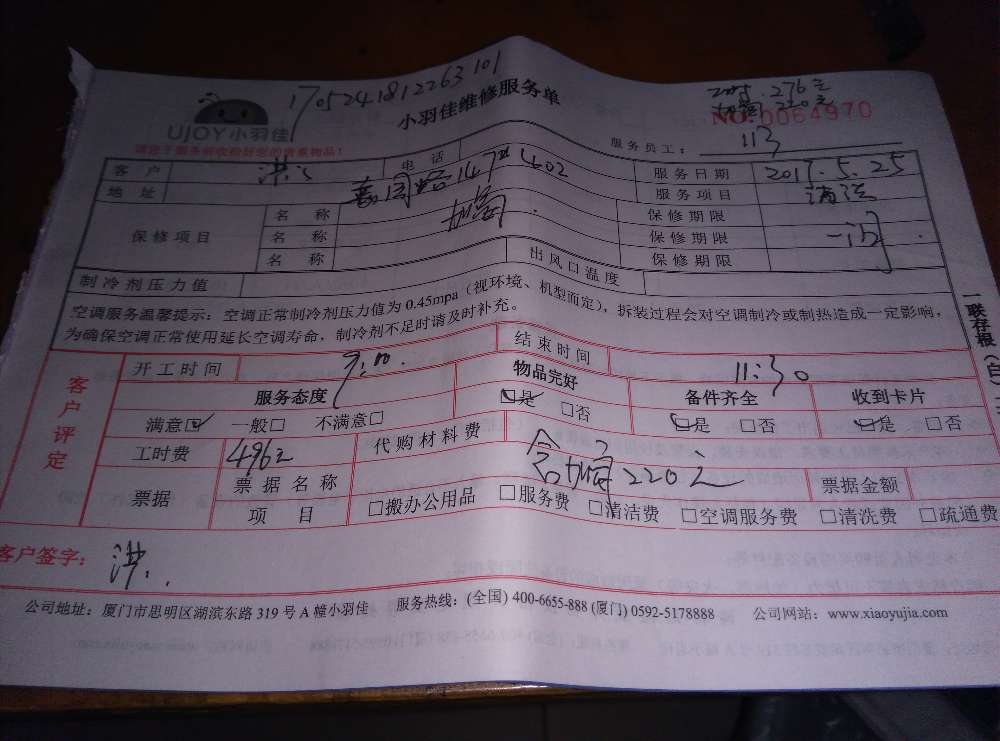 1705241812263101
小羽佳维修服务单
276元
220元
UJOY小羽佳
NO.0064970
请您于服务前收捡好您的贵重物品！
服务员工： 113
客 户 洪 电 话 服务日期 2017.5.25
地 址 147 402 服务项目 清洗
保修项目 名 称 保修期限
名 称 保修期限
名 称 保修期限
制冷剂压力值 出风口温度
空调服务温馨提示：空调正常制冷剂压力值为 0.45mpa（视环境、机型而定），拆装过程会对空调制冷或制热造成一定影响，
为确保空调正常使用延长空调寿命，制冷剂不足时请及时补充。
一联存根（白）
客户评定
开工时间 结束时间 11:30
服务态度 物品完好 备件齐全 收到卡片
满意☑ 一般□ 不满意□ ☑是 □否 ☑是 □否 ☑是 □否
工时费 496元 代购材料费 含 220元
票据 票据名称 票据金额
项 目 □搬办公用品 □服务费 □清洁费 □空调服务费 □清洗费 □疏通费
客户签字： 洪
公司地址：厦门市思明区湖滨东路 319 号 A 幢小羽佳 服务热线：(全国) 400-6655-888 (厦门) 0592-5178888 公司网站：www.xiaoyujia.com